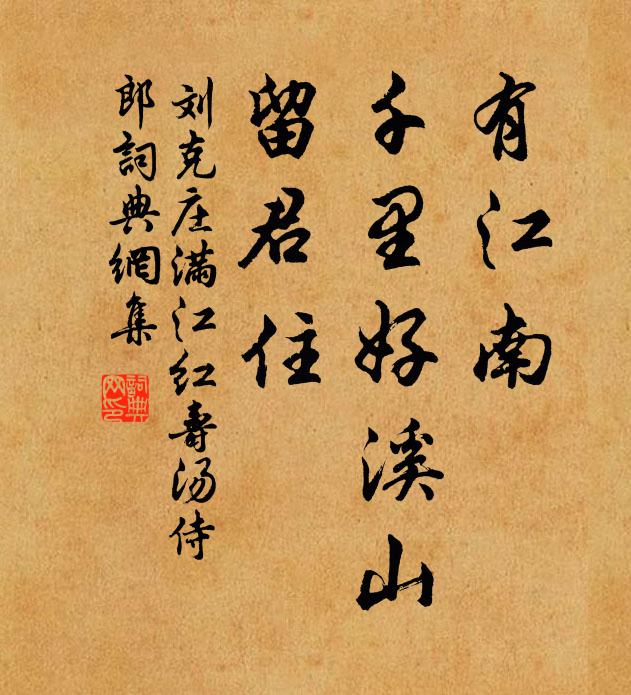 有江南
千里好溪山
留君住
刘克庄满江红寿汤侍
郎詞典網集
詞典網印